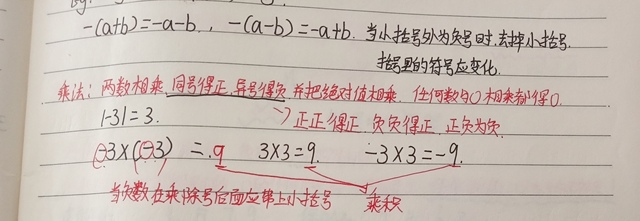 -(a+b)=-a-b., -(a-b)=-a+b. 当小括号外为负号时,去掉小括号.
括号里的符号应变化.
乘法: 两数相乘,同号得正,异号得负,并把绝对值相乘. 任何数与0相乘都得0.
|-3|=3. → 正正得正. 负负得正. 正负为负.
-3×(-3) =.9 3×3=9. -3×3=-9.
当负数在乘除号后面应带上小括号 乘积